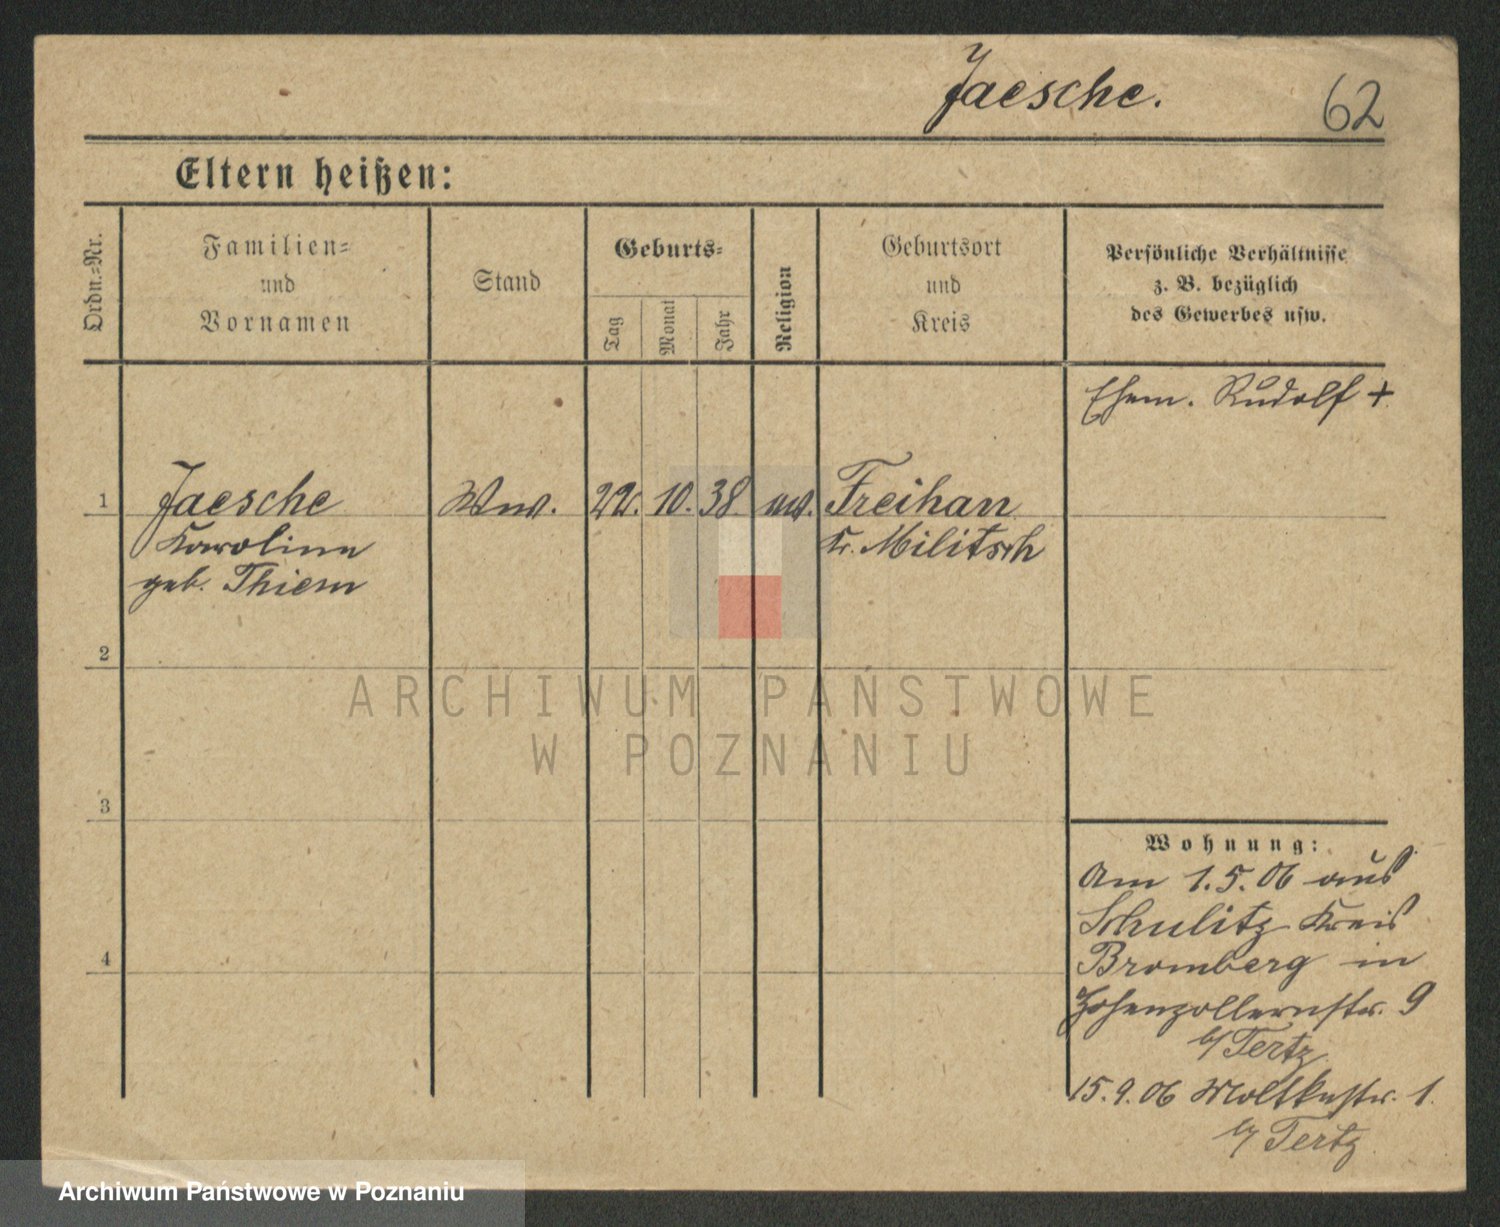 Jaesche.
62
Eltern heißen:
Ordn.-Nr.
Familien-
und
Vornamen
Stand
Geburts-
Tag
Monat
Jahr
Religion
Geburtsort
und
Kreis
Persönliche Verhältnisse
z. B. bezüglich
des Gewerbes usw.
Ehem. Rudolf +
1 Jaesche Ww. 22. 10. 38 Freihan
Karoline Kr. Militsch
geb. Thiem
2
ARCHIWUM PAŃSTWOWE
W POZNANIU
3
Wohnung:
Am 1.5.06 aus
Schulitz Kreis
Bromberg in
Hohenzollernstr. 9
b/ Tertz
15.9.06 Moltkestr. 1.
b/ Tertz
4
Archiwum Państwowe w Poznaniu